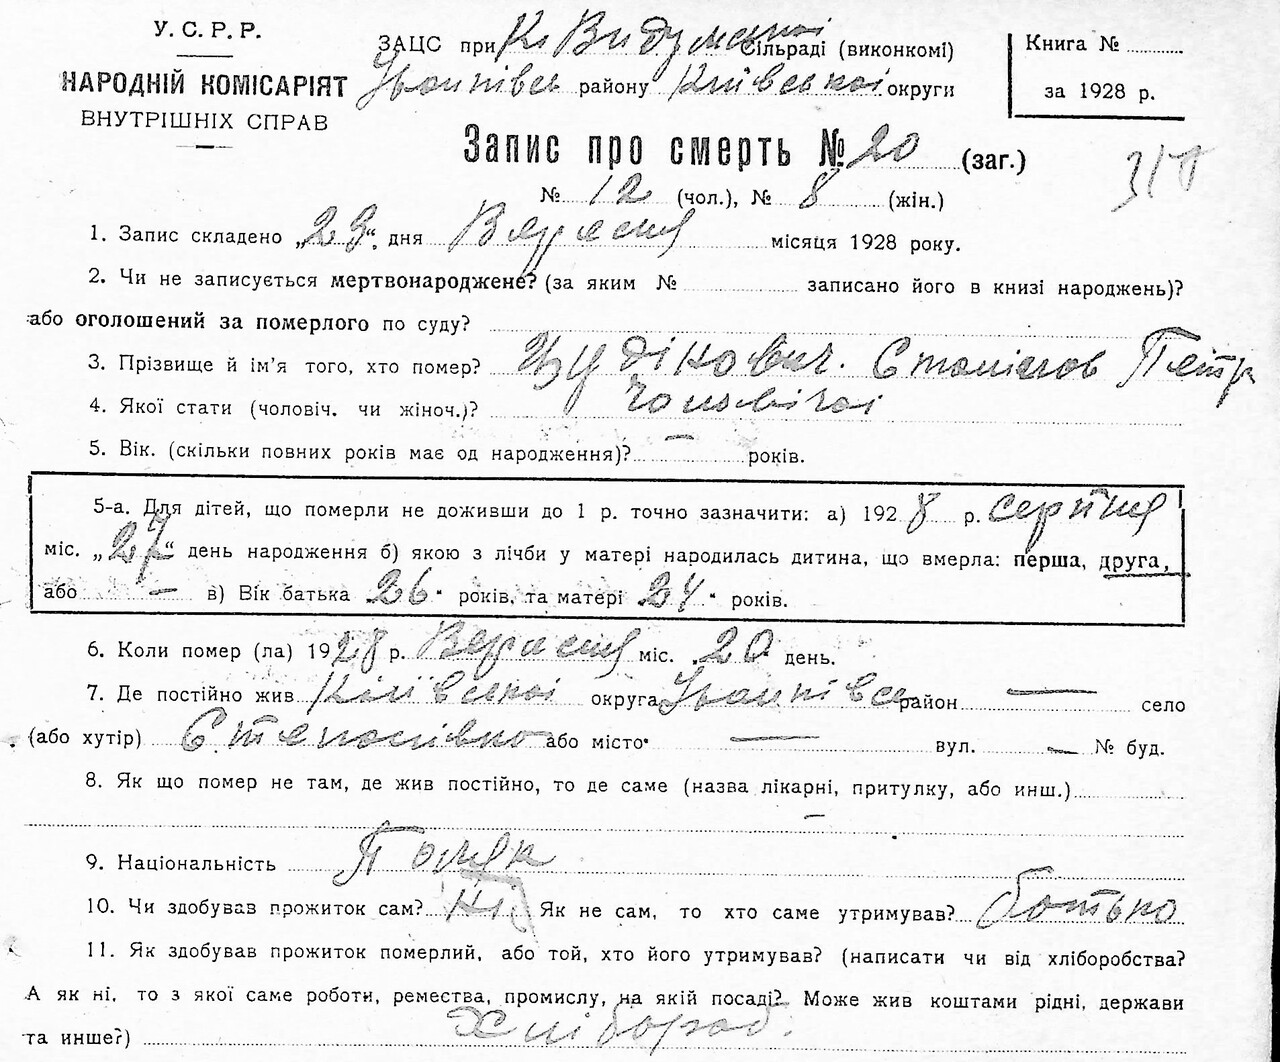 У. С. Р. Р.
НАРОДНІЙ КОМІСАРІЯТ
ВНУТРІШНІХ СПРАВ
ЗАЦС при К Видумської Сільраді (виконкомі)
району Київської округи
Книга №
за 1928 р.
Запис про смерть № 20 (заг.)
№ 12 (чол.), № 8 (жін.)
1. Запис складено „29“ дня Вересня місяця 1928 року.
2. Чи не записується мертвонароджене? (за яким № записано його в книзі народжень)?
або оголошений за померлого по суду?
3. Прізвище й ім'я того, хто помер? Станіслов Петр
4. Якої стати (чоловіч. чи жіноч.)? Чоловічої
5. Вік. (скільки повних років має од народження)? — років.
5-а. Для дітей, що померли не доживши до 1 р. точно зазначити: а) 1928 р. серпня
міс. „27“ день народження б) якою з лічби у матері народилась дитина, що вмерла: перша, друга,
або — в) Вік батька 26 років, та матері 24 років.
6. Коли помер (ла) 1928 р. Вересня міс. 20 день.
7. Де постійно жив Київської округа район — село
(або хутір) або місто — вул. — № буд.
8. Як що помер не там, де жив постійно, то де саме (назва лікарні, притулку, або инш.)
—
9. Національність Поляк
10. Чи здобував прожиток сам? Ні Як не сам, то хто саме утримував?ботько
11. Як здобував прожиток померлий, або той, хто його утримував? (написати чи від хліборобства?
А як ні, то з якої саме роботи, ремества, промислу, на якій посаді? Може жив коштами рідні, держави
та инше?) Хлібороб.